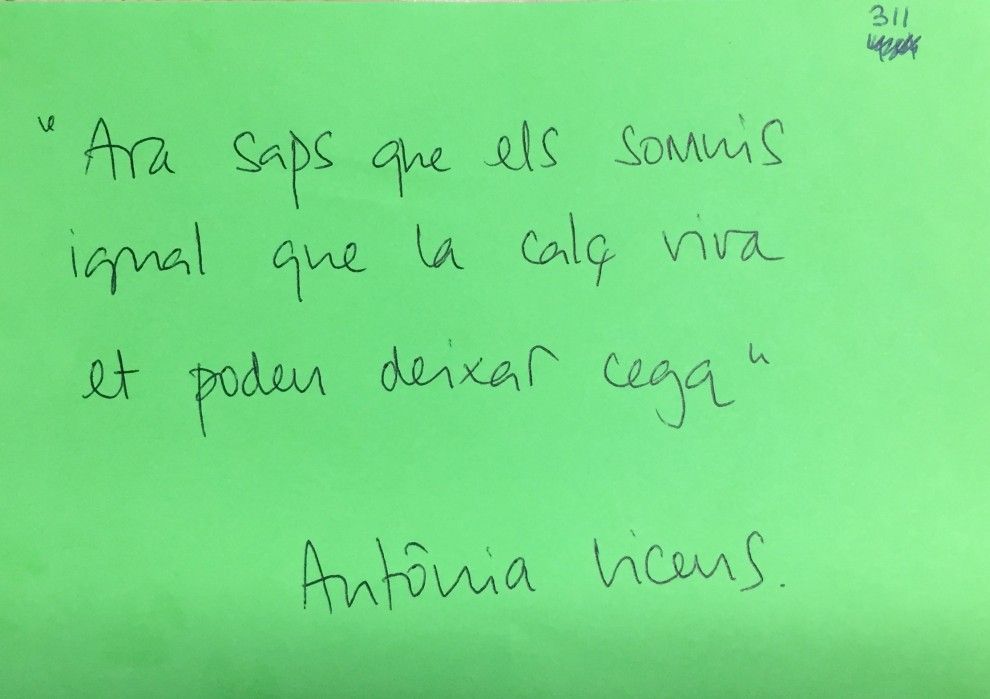 311
"Ara saps que els somnis
igual que la calç viva
et poden deixar cega"
Antònia Vicens.